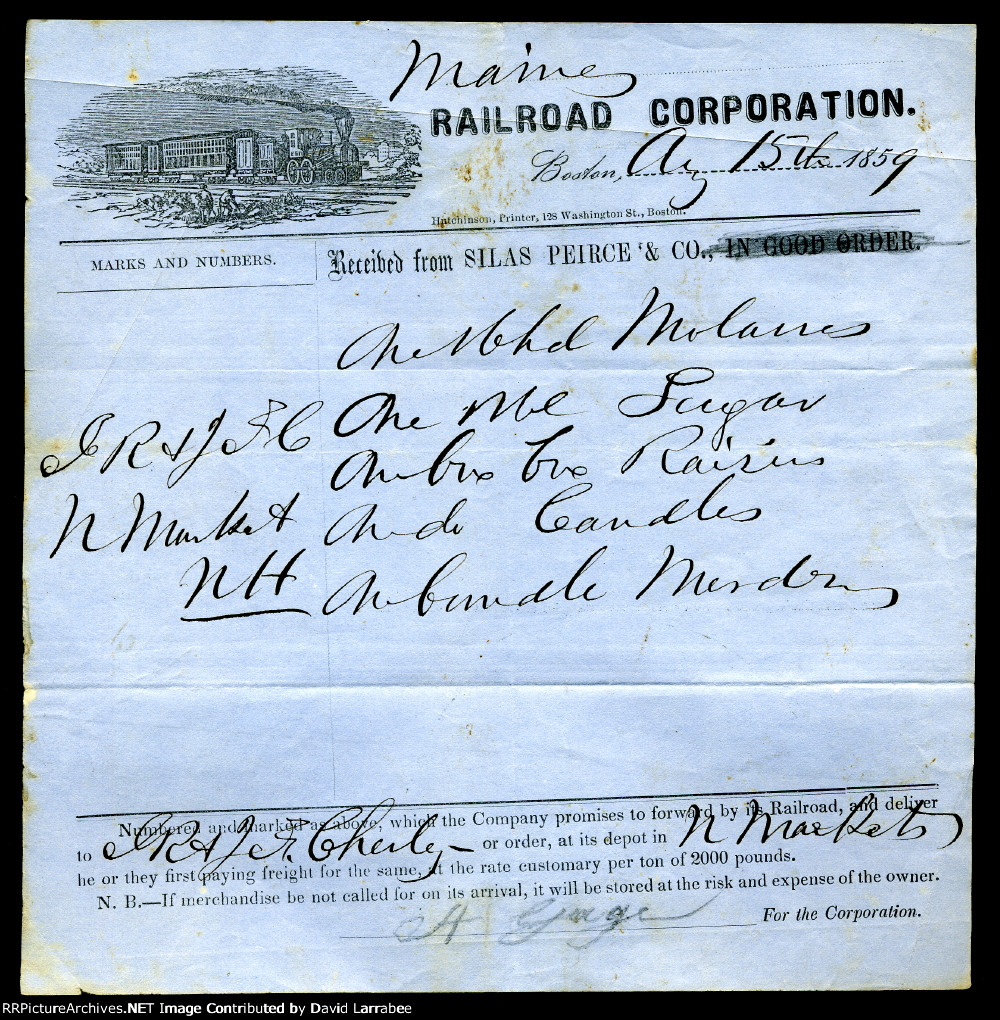 Maine
RAILROAD CORPORATION.
Boston, Aug 15th 1859
Hutchinson, Printer, 128 Washington St., Boston.
MARKS AND NUMBERS.
Received from SILAS PEIRCE & CO., IN GOOD ORDER.
One Hhd Molasses
One Bbl Sugar
J R & J F C
One Box Raisins
N Market
One do Candles
NH
One bundle
Numbered and marked as above, which the Company promises to forward by its Railroad, and deliver
to J R & J F Cherley or order, at its depot in N Market
he or they first paying freight for the same, at the rate customary per ton of 2000 pounds.
N. B.—If merchandise be not called for on its arrival, it will be stored at the risk and expense of the owner.
Gage For the Corporation.
RRPictureArchives.NET Image Contributed by David Larrabee